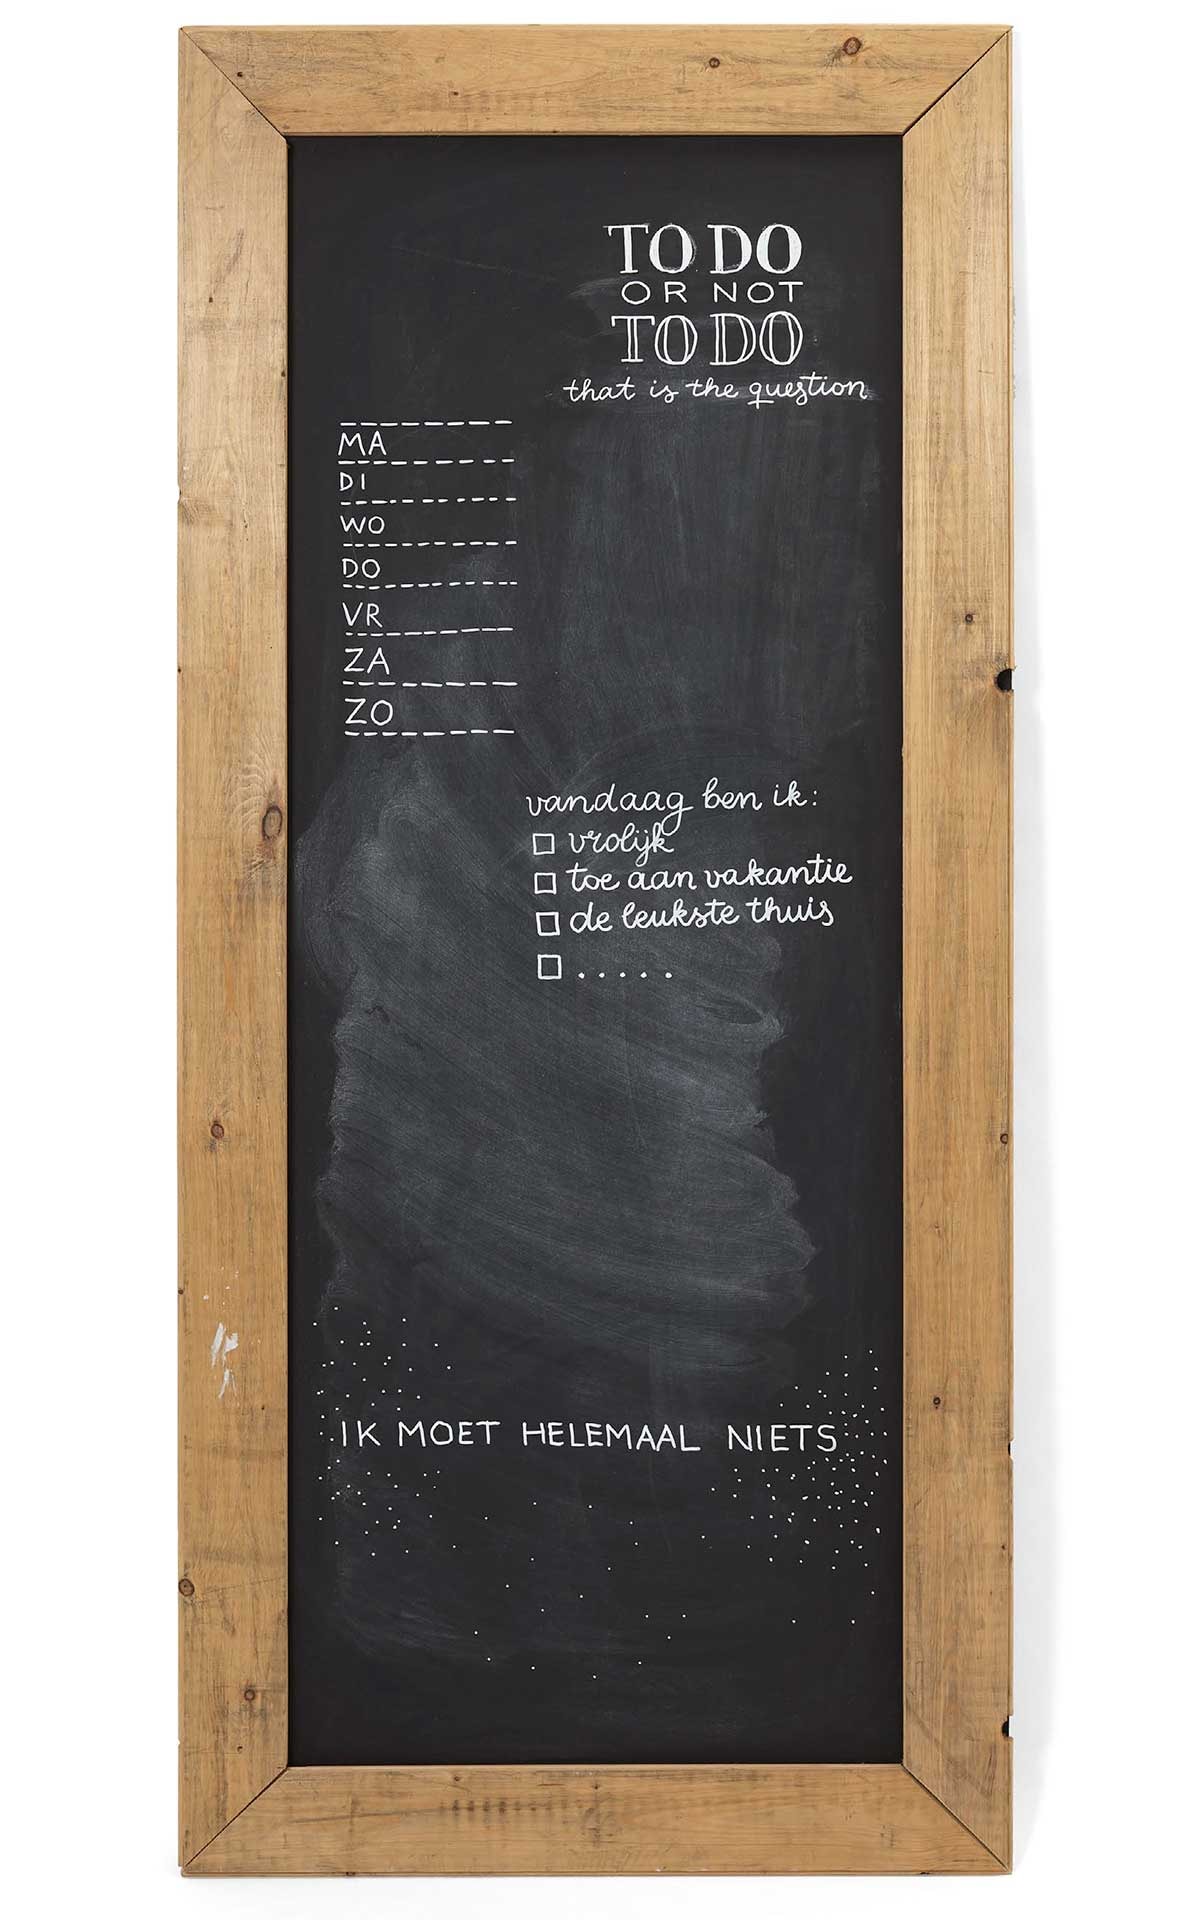 TO DO
OR NOT
TO DO
that is the question
MA
DI
WO
DO
VR
ZA
ZO
vandaag ben ik:
vrolijk
toe aan vakantie
de leukste thuis
.....
IK MOET HELEMAAL NIETS